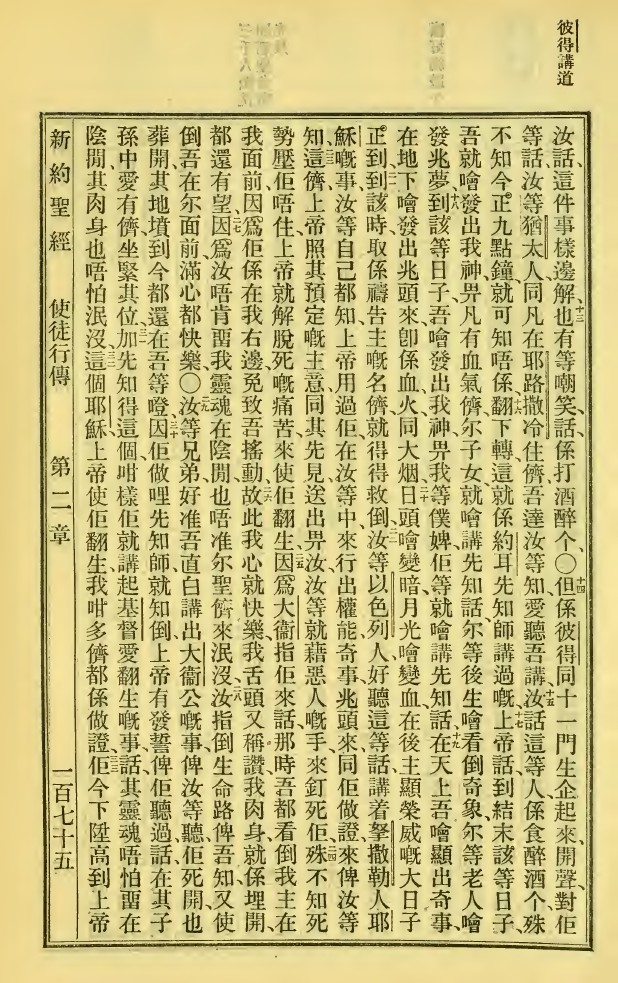 彼得講道
汝話、這件事樣邊解也有等嘲笑話係打酒醉个、〇但係彼得同十一門生企起來開聲對佢
等話汝等猶太人同凡在耶路撒冷住儕吾達汝等知愛聽吾講汝話這等人係食醉酒个殊
不知今正九點鐘就可知唔係翻下轉這就係約耳先知師講過嘅上帝話到結末該等日子
吾就噲發出我神畀凡有血氣儕尔子女就噲講先知話尔等後生噲看倒奇象尔等老人噲
發兆夢到該等日子吾噲發出我神畀我等僕婢佢等就噲講先知話在天上吾噲顯出奇事
在地下噲發出兆頭來卽係血火同大烟日頭噲變暗月光噲變血在後主顯榮威嘅大日子
正到到該時取係禱告主嘅名儕就得得救倒汝等以色列人好聽這等話講着拏撒勒人耶
穌嘅事汝等自己都知上帝用過佢在汝等中來行出權能奇事兆頭來同佢做證來俾汝等
知這儕上帝照其預定嘅主意同其先見送出畀汝汝等就藉惡人嘅手來釘死佢殊不知死
勢壓佢唔住上帝就解脫死嘅痛苦來使佢翻生因爲大衞指佢來話那時吾都看倒我主在
我面前因爲佢係在我右邊免致吾搖動故此我心就快樂我舌頭又稱讚我肉身就係埋開
都還有望因爲汝唔肯畱我靈魂在陰間也唔准尔聖儕來泯沒汝指倒生命路俾吾知又使
倒吾在尔面前滿心都快樂〇汝等兄弟好准吾直白講出大衞公嘅事俾汝等聽佢死開也
葬開其地墳到今都還在吾等嶝因佢做哩先知師就知倒上帝有發誓俾佢聽過話在其子
孫中愛有儕坐緊其位加先知得這個咁樣佢就講起基督愛翻生嘅事話其靈魂唔怕畱在
陰間其肉身也唔怕泯沒這個耶穌上帝使佢翻生我咁多儕都係做證佢今下陞高到上帝
新約聖經 使徒行傳 第二章 一百七十五